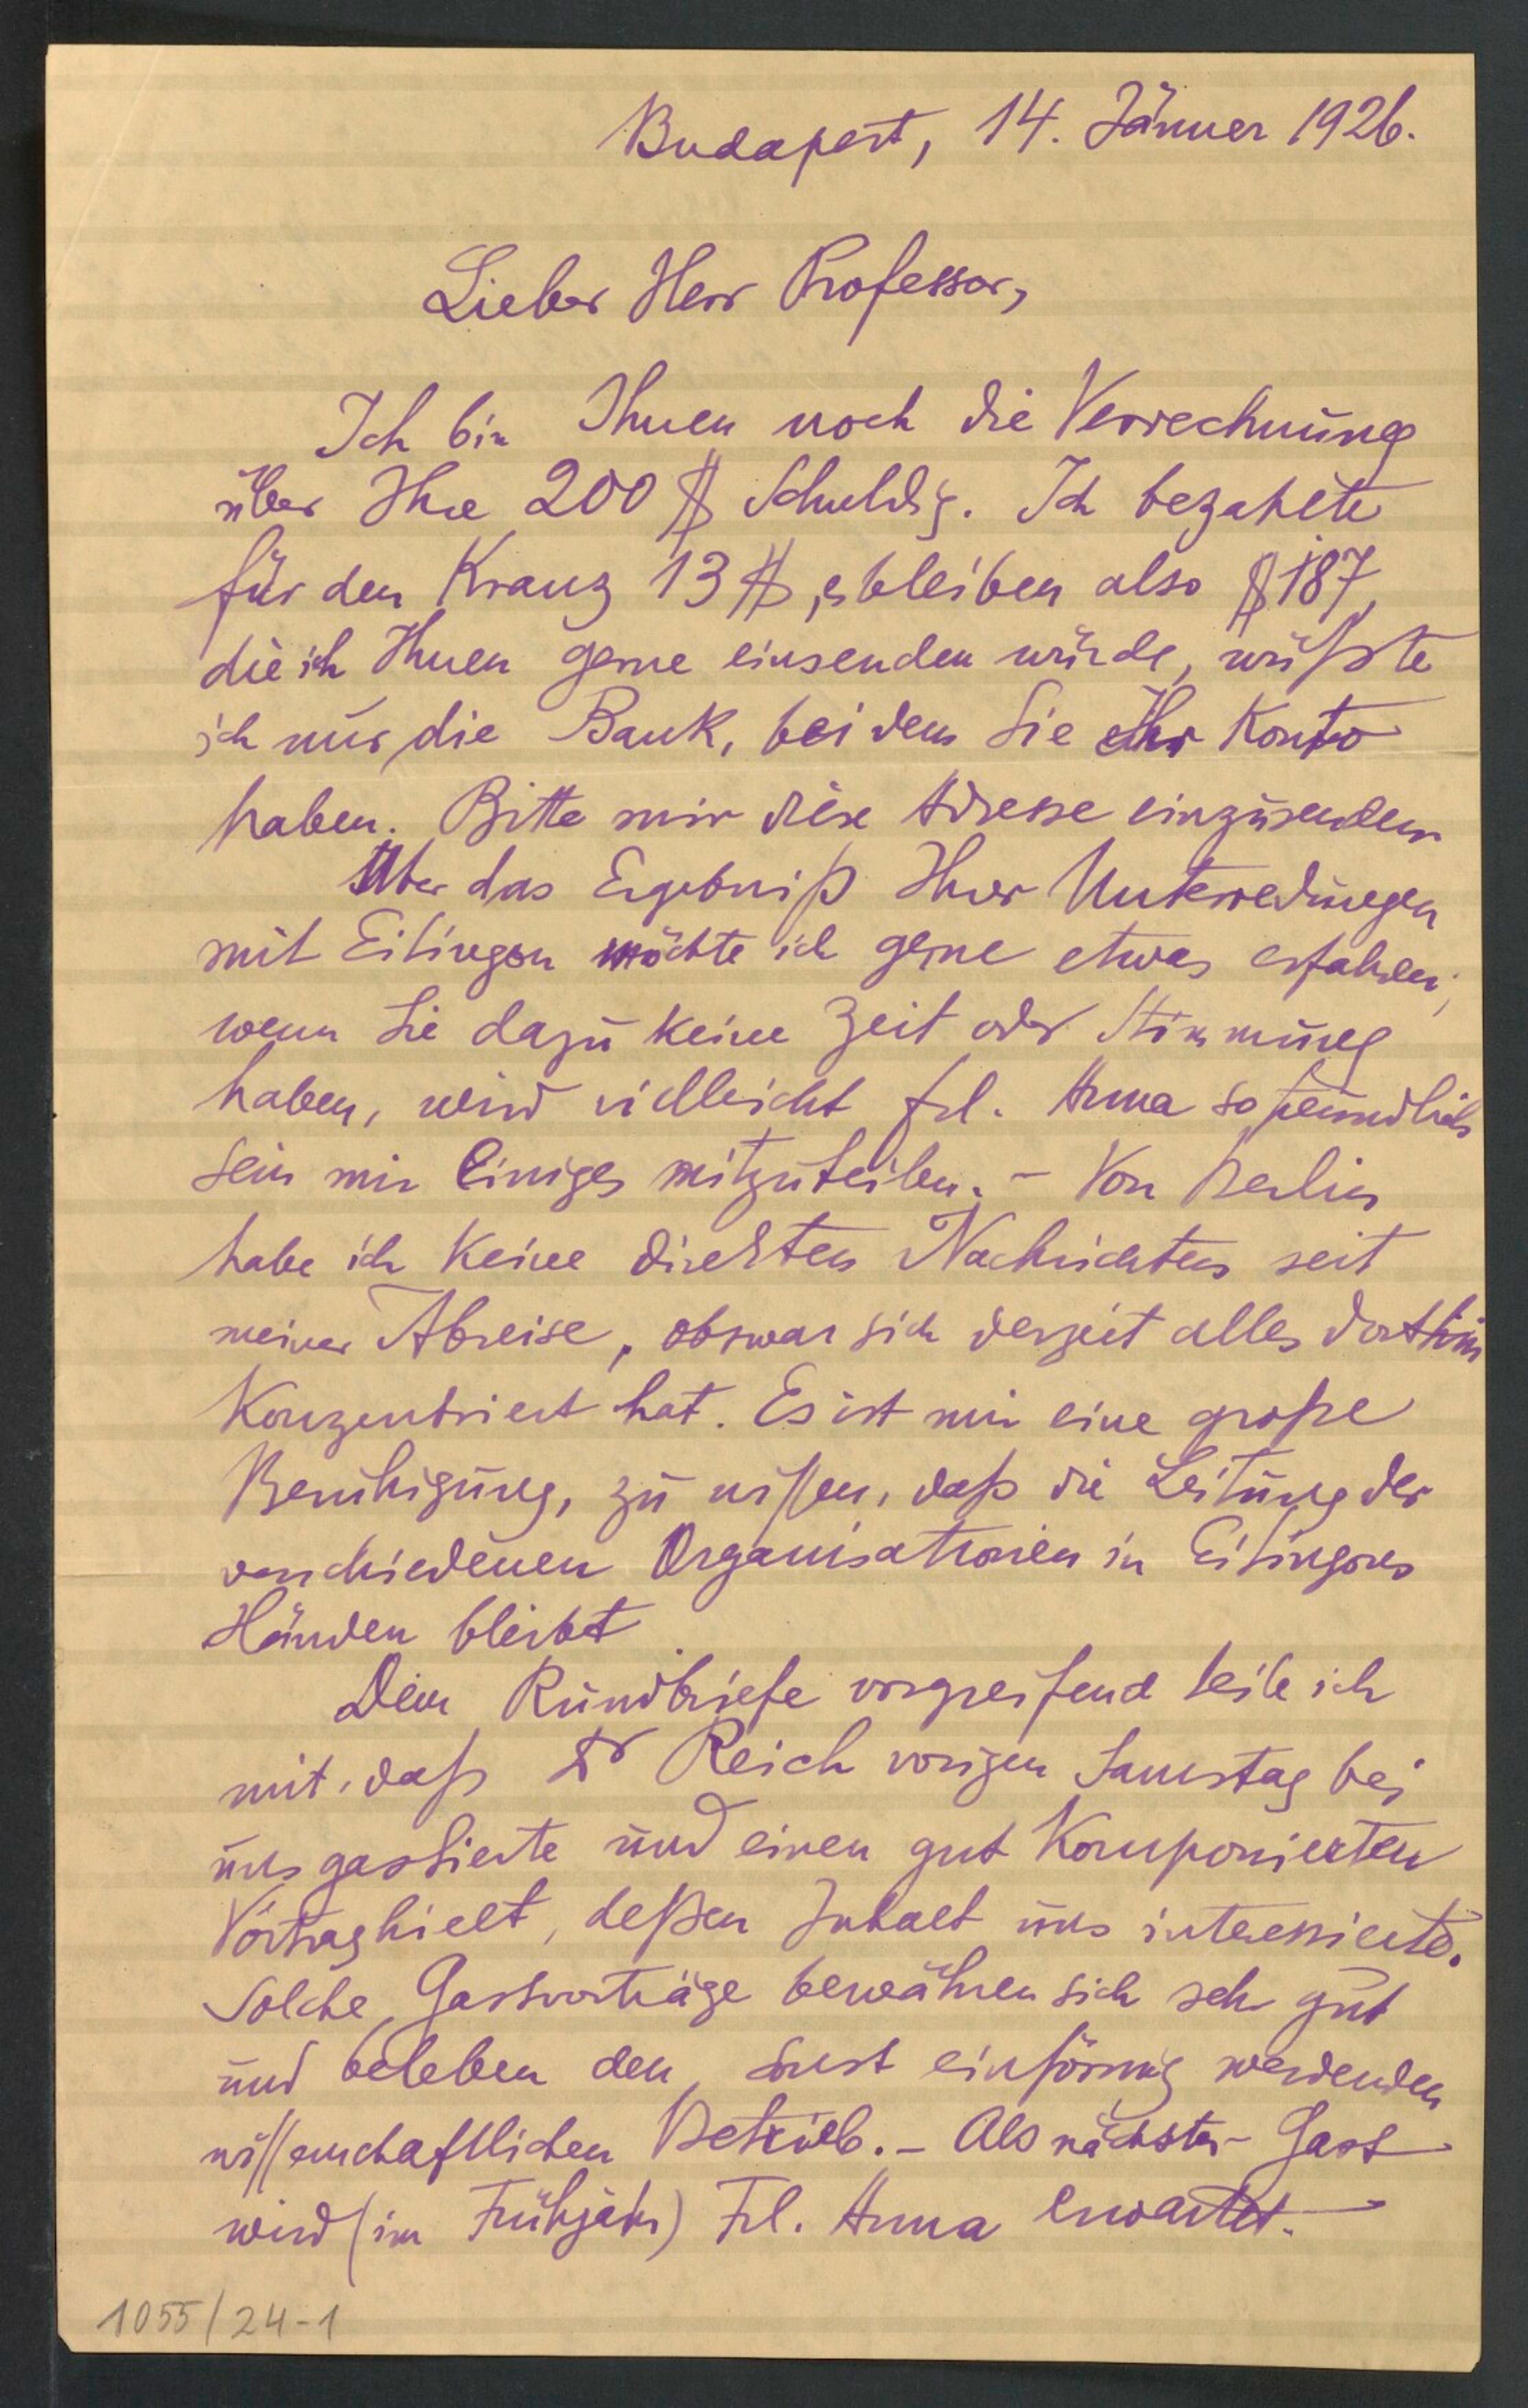 Budapest, 14. Jänner 1926.
Lieber Herr Professor,
Ich bin Ihnen noch die Verrechnung
über Ihre 200 $ schuldig. Ich bezahlte
für den Kranz 13 $, es bleiben also $ 187,
die ich Ihnen gerne einsenden würde, wüßte
ich nur die Bank, bei der Sie Ihr Konto
haben. Bitte mir diese Adresse einzusenden.
Über das Ergebniß Ihrer Unterredungen
mit Eitingon möchte ich gerne etwas erfahren;
wenn Sie dazu keine Zeit oder Stimmung
haben, wird vielleicht Frl. Anna so freundlich
sein mir Einiges mitzuteilen. – Von Berlin
habe ich keine direkten Nachrichten seit
meiner Abreise, obzwar sich derzeit alles dorthin
konzentriert hat. Es ist mir eine große
Beruhigung, zu wissen, daß die Leitung der
verschiedenen Organisationen in Eitingons
Händen bleibt.
Dem Rundbriefe vorgreifend teile ich
mit, daß Dr Reich vorigen Samstag bei
uns gastierte und einen gut komponierten
Vortrag hielt, deßen Inhalt uns interessierte.
Solche Gastvorträge bewähren sich sehr gut
und beleben den, sonst einförmig werdenden
wissenschaftlichen Betrieb. – Als nächster Gast
wird (im Frühjahr) Frl. Anna erwartet. –
1055/24-1